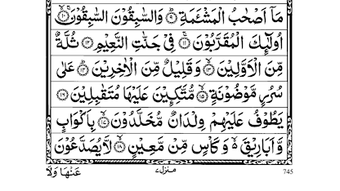 مَآ اَصْحٰبُ الْمَشْـَٔمَةِ ۝٩ وَالسّٰبِقُوْنَ السّٰبِقُوْنَ ۝١٠
اُولٰٓئِكَ الْمُقَرَّبُوْنَ ۝١١ فِیْ جَنّٰتِ النَّعِیْمِ ۝١٢ ثُلَّةٌ
مِّنَ الْاَوَّلِیْنَ ۝١٣ وَقَلِیْلٌ مِّنَ الْاٰخِرِیْنَ ۝١٤ عَلٰی
سُرُرٍ مَّوْضُوْنَةٍ ۝١٥ مُّتَّكِـِٕیْنَ عَلَیْهَا مُتَقٰبِلِیْنَ ۝١٦
یَطُوْفُ عَلَیْهِمْ وِلْدَانٌ مُّخَلَّدُوْنَ ۝١٧ بِاَكْوَابٍ
وَّاَبَارِیْقَ ۙ وَكَاْسٍ مِّنْ مَّعِیْنٍ ۝١٨ لَّا یُصَدَّعُوْنَ
عَنْهَا وَلَا
منزل ٧
745